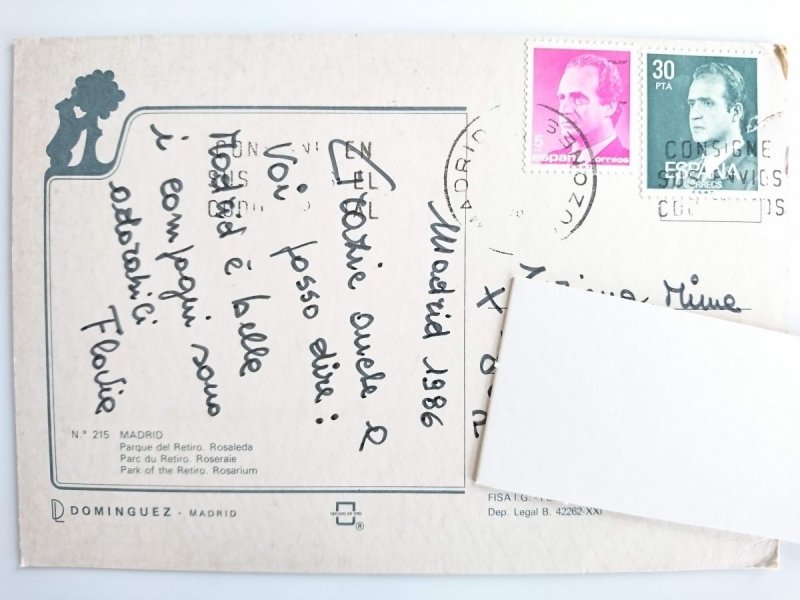 Madrid 1986
Grazie anche a
Voi posso dire:
Madrid è bella
i compagni sono
adorabili
Flavia
5
españa correos
30
PTA
ESPAÑA
CORREOS
MADRID
EN
SUS EL
CONSIGNE
SUS ENVIOS
Mime
X
N.° 215 MADRID
Parque del Retiro. Rosaleda
Parc du Retiro. Roseraie
Park of the Retiro. Rosarium
DOMINGUEZ - MADRID
®
FISA I.G.
Dep. Legal B. 42262-XXI